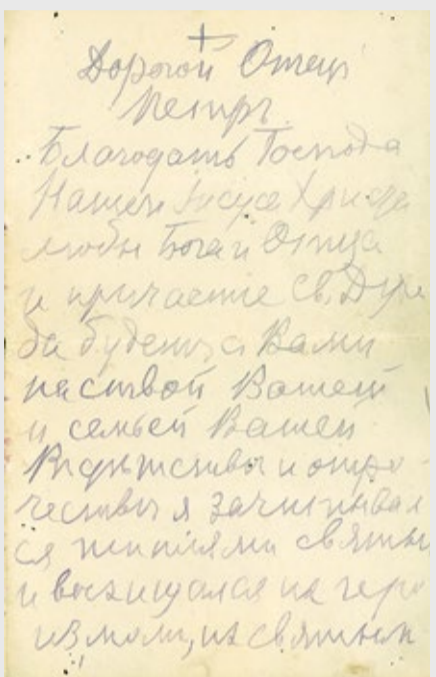 Дорогой Отецъ
Петръ.
Благодать Господа
Нашего Іисуса Христа
любы Бога и Отца
и причастие Св. Духа
да будетъ съ Вами
паствой Вашей
и семьей Вашей
Въ дѣтствѣ и отро-
чествѣ я зачитывал
ся житиями святых
и восхищался их геро
измом, их святым